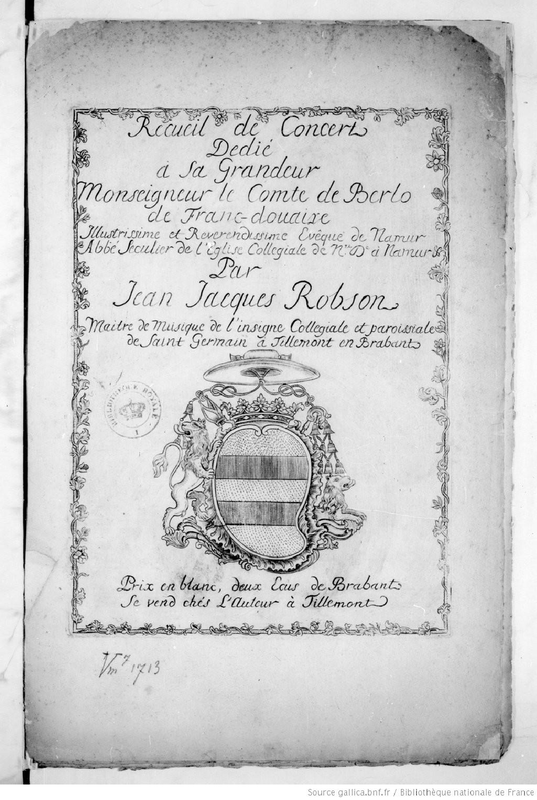 Recueil de Concert
Dedié
á Sa Grandeur
Monseigneur le Comte de Berlo
de Franc-douaire
Illustrissime et Reverendissime Evêque de Namur
Abbé Seculier de l'Eglise Collegiale de Nre De á Namur
Par
Jean Jacques Robson
Maitre de Musique de l'insigne Collegiale et paroissiale
de Saint Germain à Tillemont en Brabant
BIBLIOTHEQUE ROYALE
Prix en blanc, deux Ecus de Brabant
Se vend chés L'Auteur à Tillemont
Vm7 1713
Source gallica.bnf.fr / Bibliothèque nationale de France